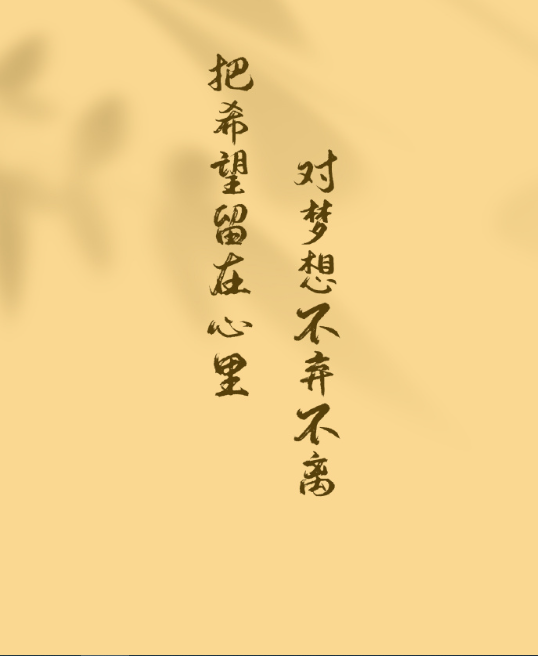 把希望留在心里
对梦想不弃不离